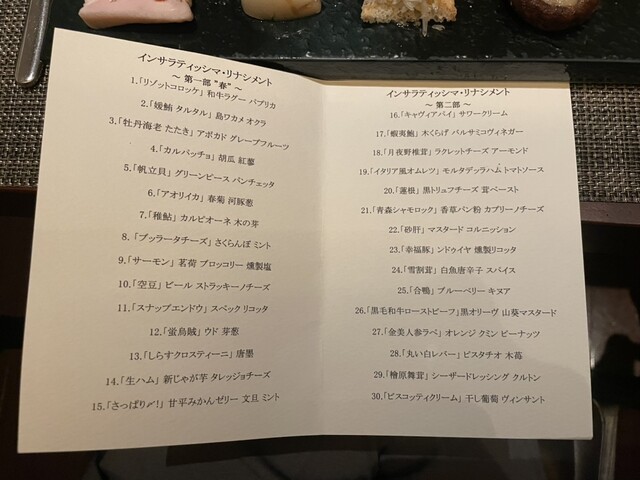 インサラティッシマ・リナシメント
～ 第一部 "春" ～
1.「リゾットコロッケ」 和牛ラグー パプリカ
2.「媛鮪 タルタル」 島ワカメ オクラ
3.「牡丹海老 たたき」 アボカド グレープフルーツ
4.「カルパッチョ」 胡瓜 紅蓼
5.「帆立貝」 グリーンピース パンチェッタ
6.「アオリイカ」 春菊 河豚葱
7.「稚鮎」 カルピオーネ 木の芽
8.「ブッラータチーズ」 さくらんぼ ミント
9.「サーモン」 茗荷 ブロッコリー 燻製塩
10.「空豆」 ビール ストラッキーノチーズ
11.「スナップエンドウ」 スペック リコッタ
12.「蛍烏賊」 ウド 芽葱
13.「しらすクロスティーニ」 唐墨
14.「生ハム」 新じゃが芋 タレッジョチーズ
15.「さっぱり〆!」 甘平みかんゼリー 文旦 ミント
インサラティッシマ・リナシメント
～ 第二部 ～
16.「キャヴィアパイ」 サワークリーム
17.「蝦夷鮑」 木くらげ バルサミコヴィネガー
18.「月夜野椎茸」 ラクレットチーズ アーモンド
19.「イタリア風オムレツ」 モルタデッラハム トマトソース
20.「蓮根」 黒トリュフチーズ 茸ペースト
21.「青森シャモロック」 香草パン粉 カプリーノチーズ
22.「砂肝」 マスタード コルニッション
23.「幸福豚」 ンドゥイヤ 燻製リコッタ
24.「雪割茸」 白魚唐辛子 スパイス
25.「合鴨」 ブルーベリー キヌア
26.「黒毛和牛ローストビーフ」 黒オリーヴ 山葵マスタード
27.「金美人参ラペ」 オレンジ クミン ピーナッツ
28.「丸い白レバー」 ピスタチオ 木苺
29.「檜原舞茸」 シーザードレッシング クルトン
30.「ビスコッティクリーム」 干し葡萄 ヴィンサント